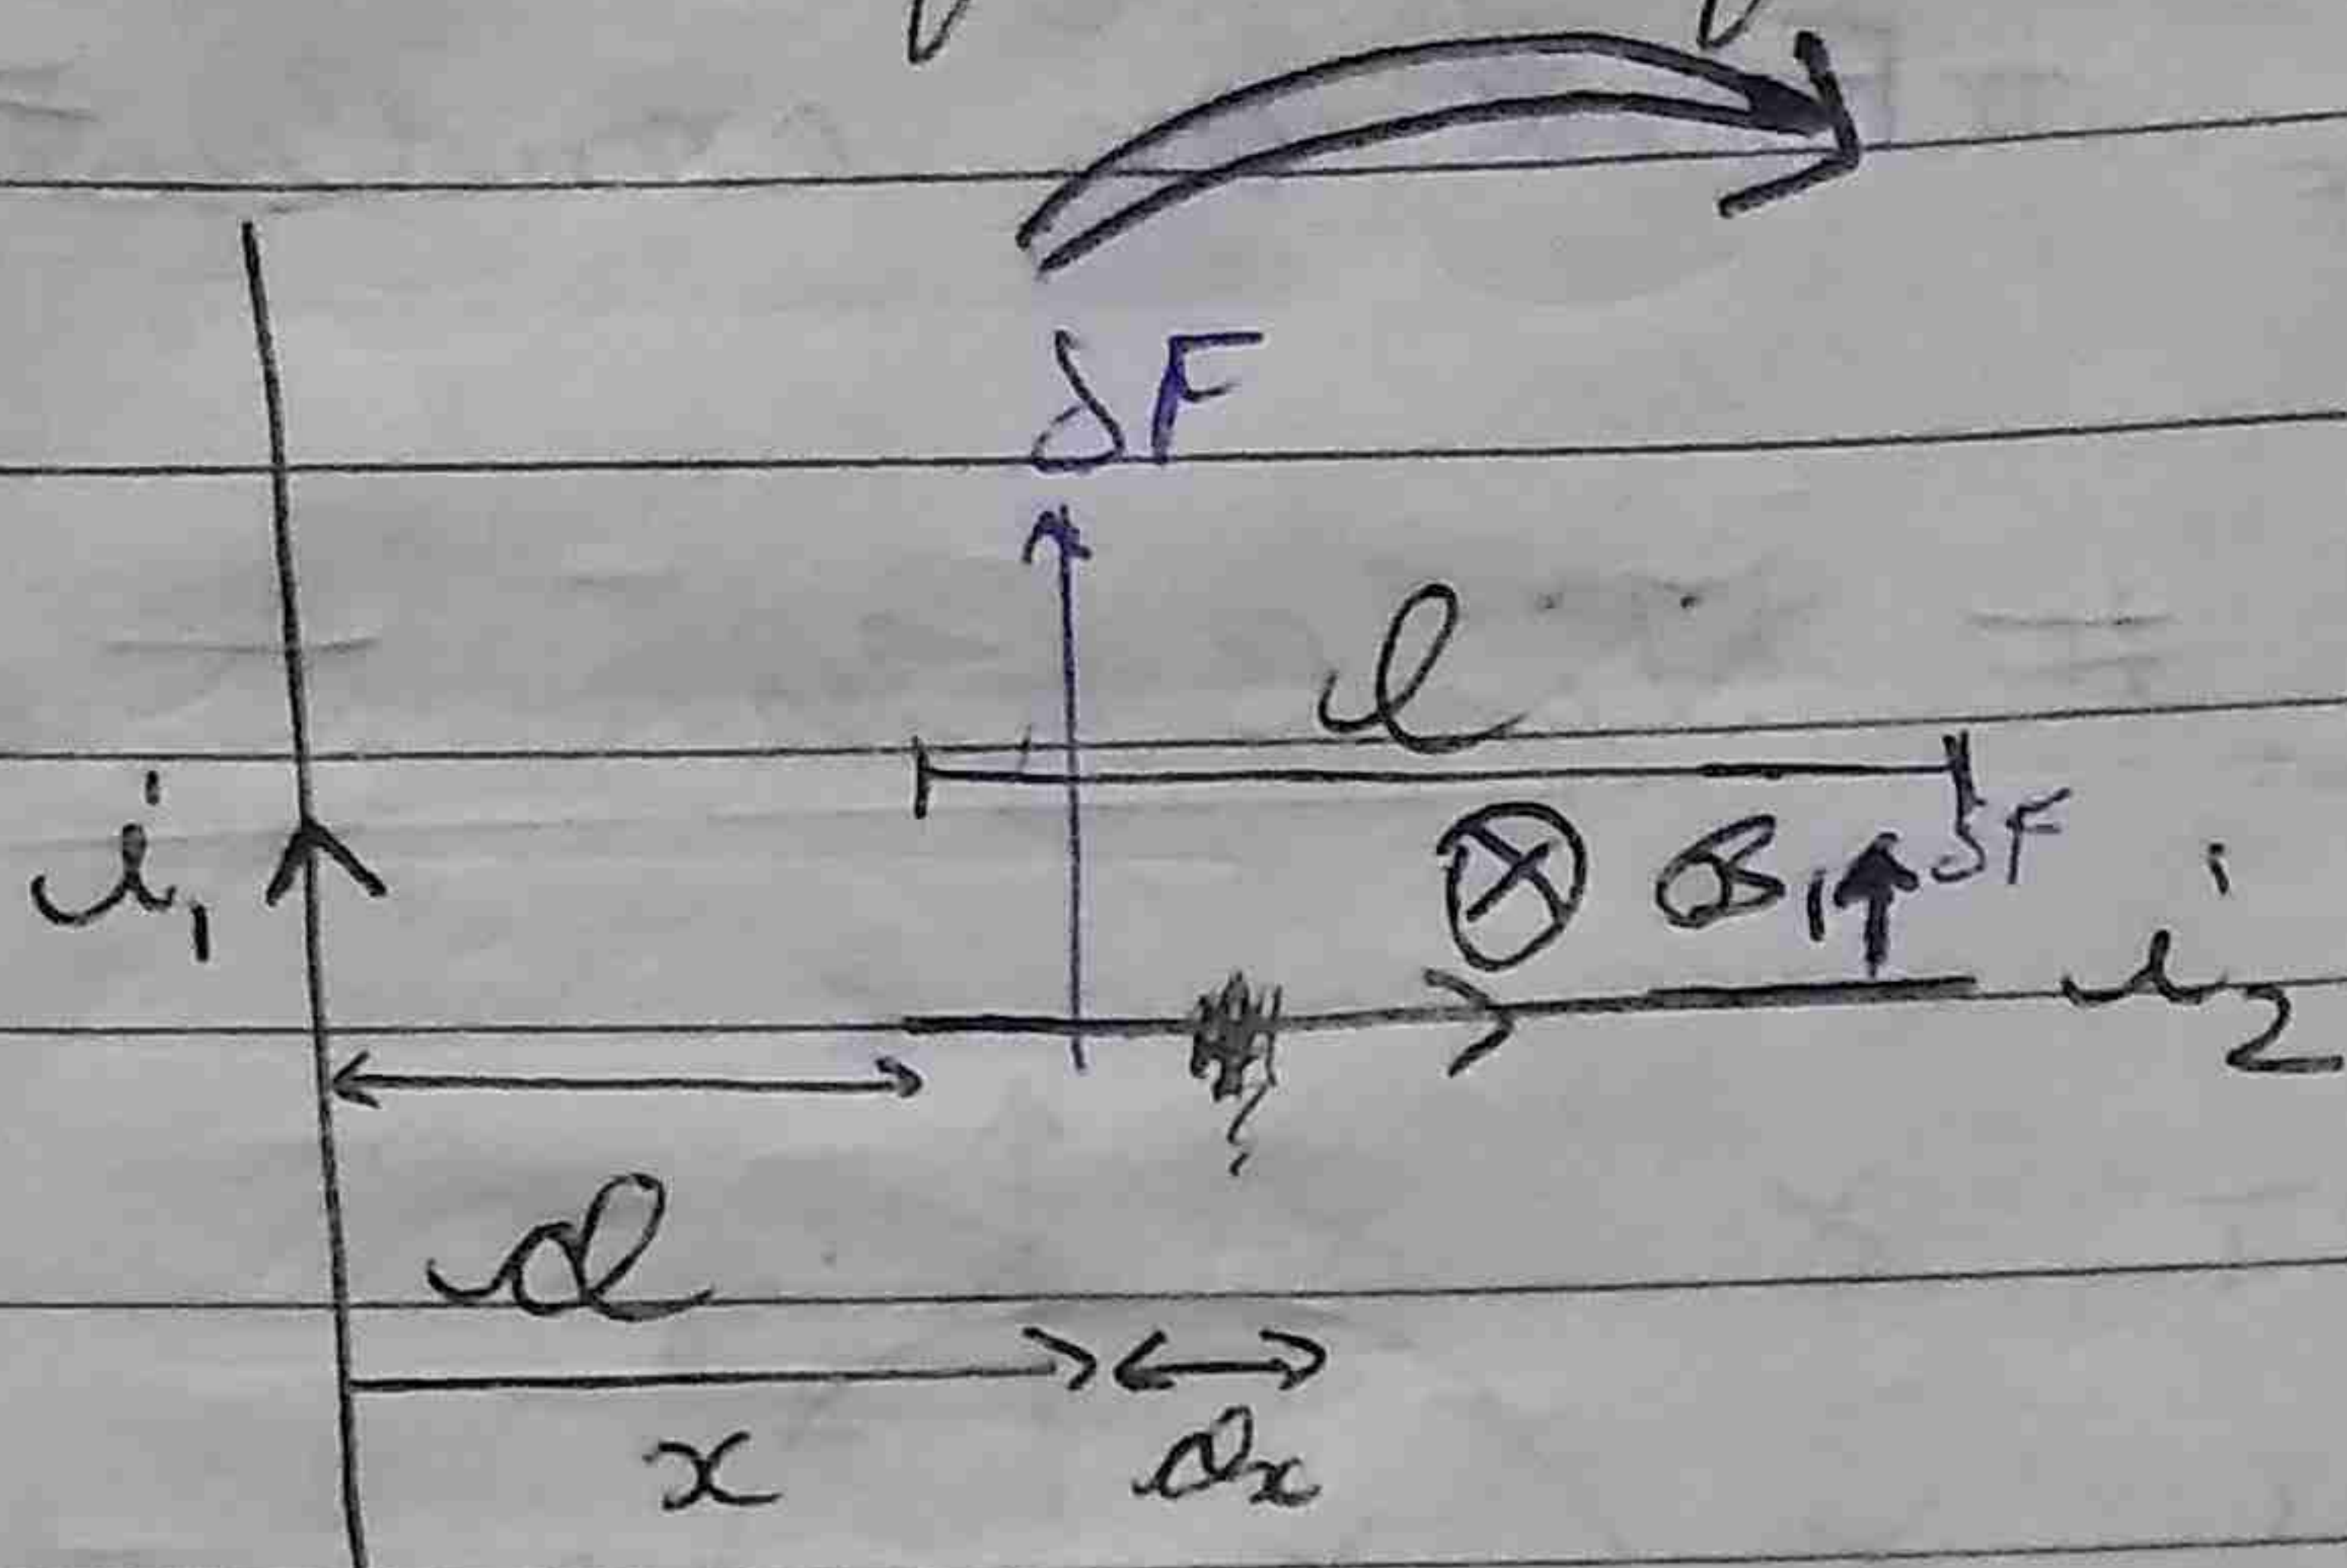 δF
l
i₁ ⊗ B₁ δF
i₂
d
x dx